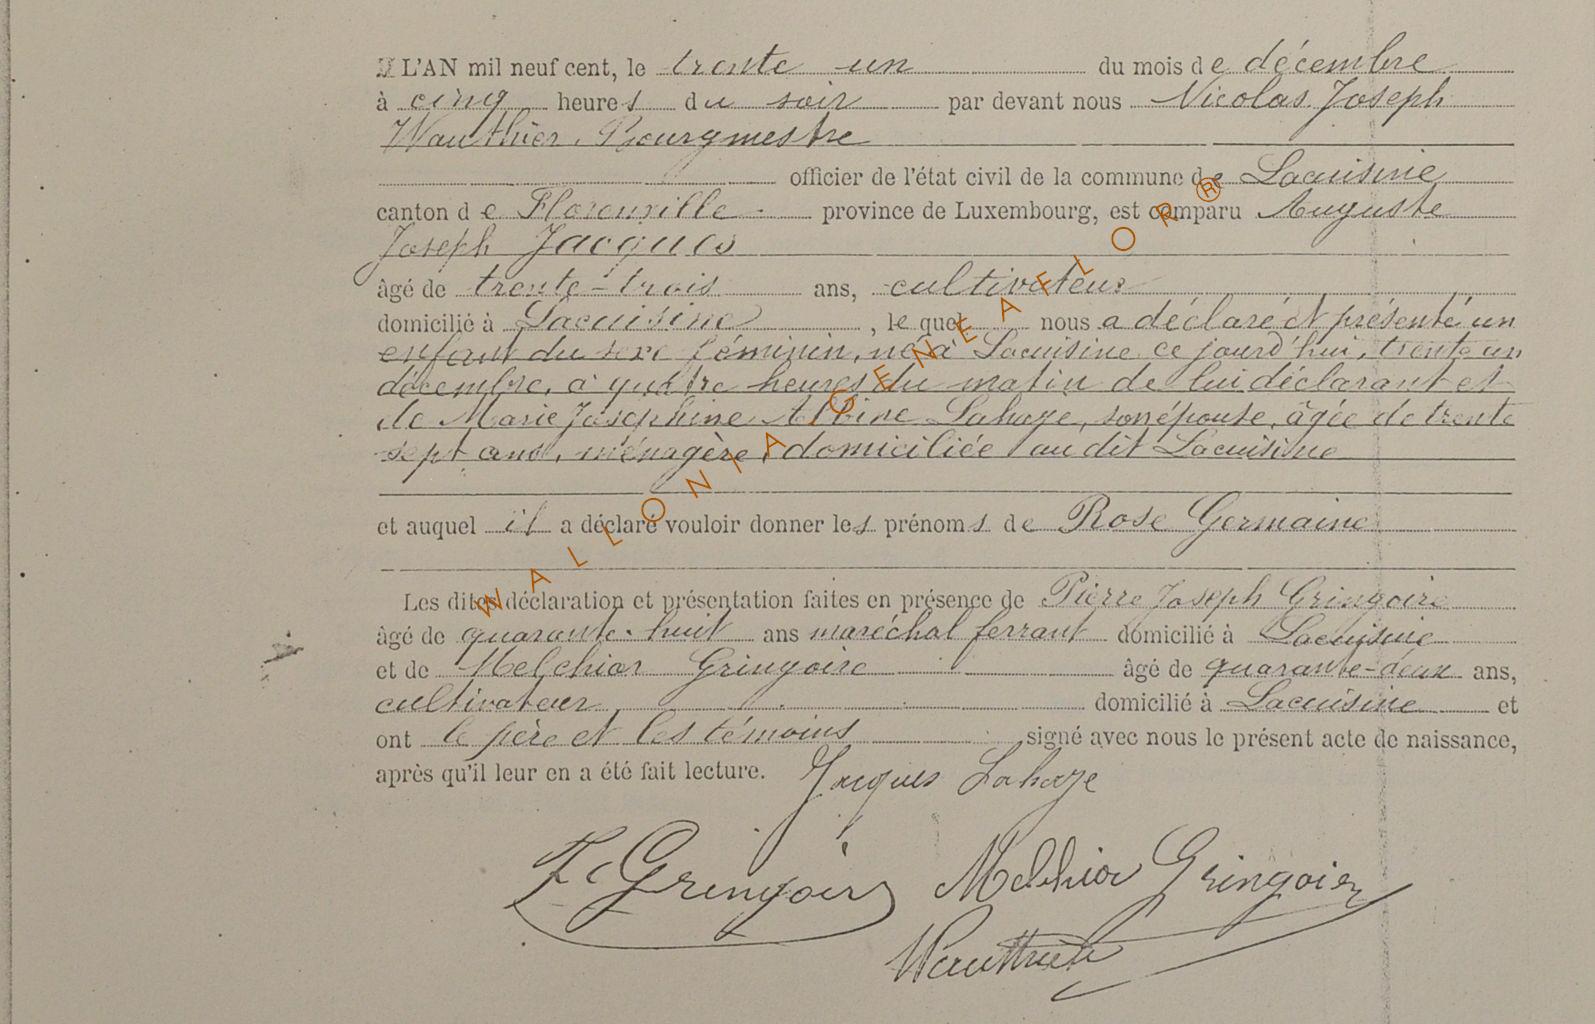 L'AN mil neuf cent, le trente un du mois de décembre
à cinq heures du soir par devant nous Nicolas Joseph
Wauthier, Bourgmestre
officier de l'état civil de la commune de Lacuisine
canton de Florenville province de Luxembourg, est comparu Auguste
Joseph Jacques
âgé de trente-trois ans, cultivateur
domicilié à Lacuisine, lequel nous a déclaré et présenté un
enfant du sexe féminin, né à Lacuisine ce jourd'hui, trente un
décembre, à quatre heures du matin de lui déclarant et
de Marie Joséphine Albine Lahaye, son épouse, âgée de trente
sept ans, ménagère, domiciliée au dit Lacuisine
et auquel il a déclaré vouloir donner les prénoms de Rose Germaine
Les dites déclaration et présentation faites en présence de Pierre Joseph Gringoire
âgé de quarante-huit ans maréchal ferrant domicilié à Lacuisine
et de Melchior Gringoire âgé de quarante-deux ans,
cultivateur domicilié à Lacuisine et
ont le père et les témoins signé avec nous le présent acte de naissance,
après qu'il leur en a été fait lecture. Jacques Lahaye
Gringoire Melchior Gringoire
Wauthier
WALLONIA GENEAFLOR®